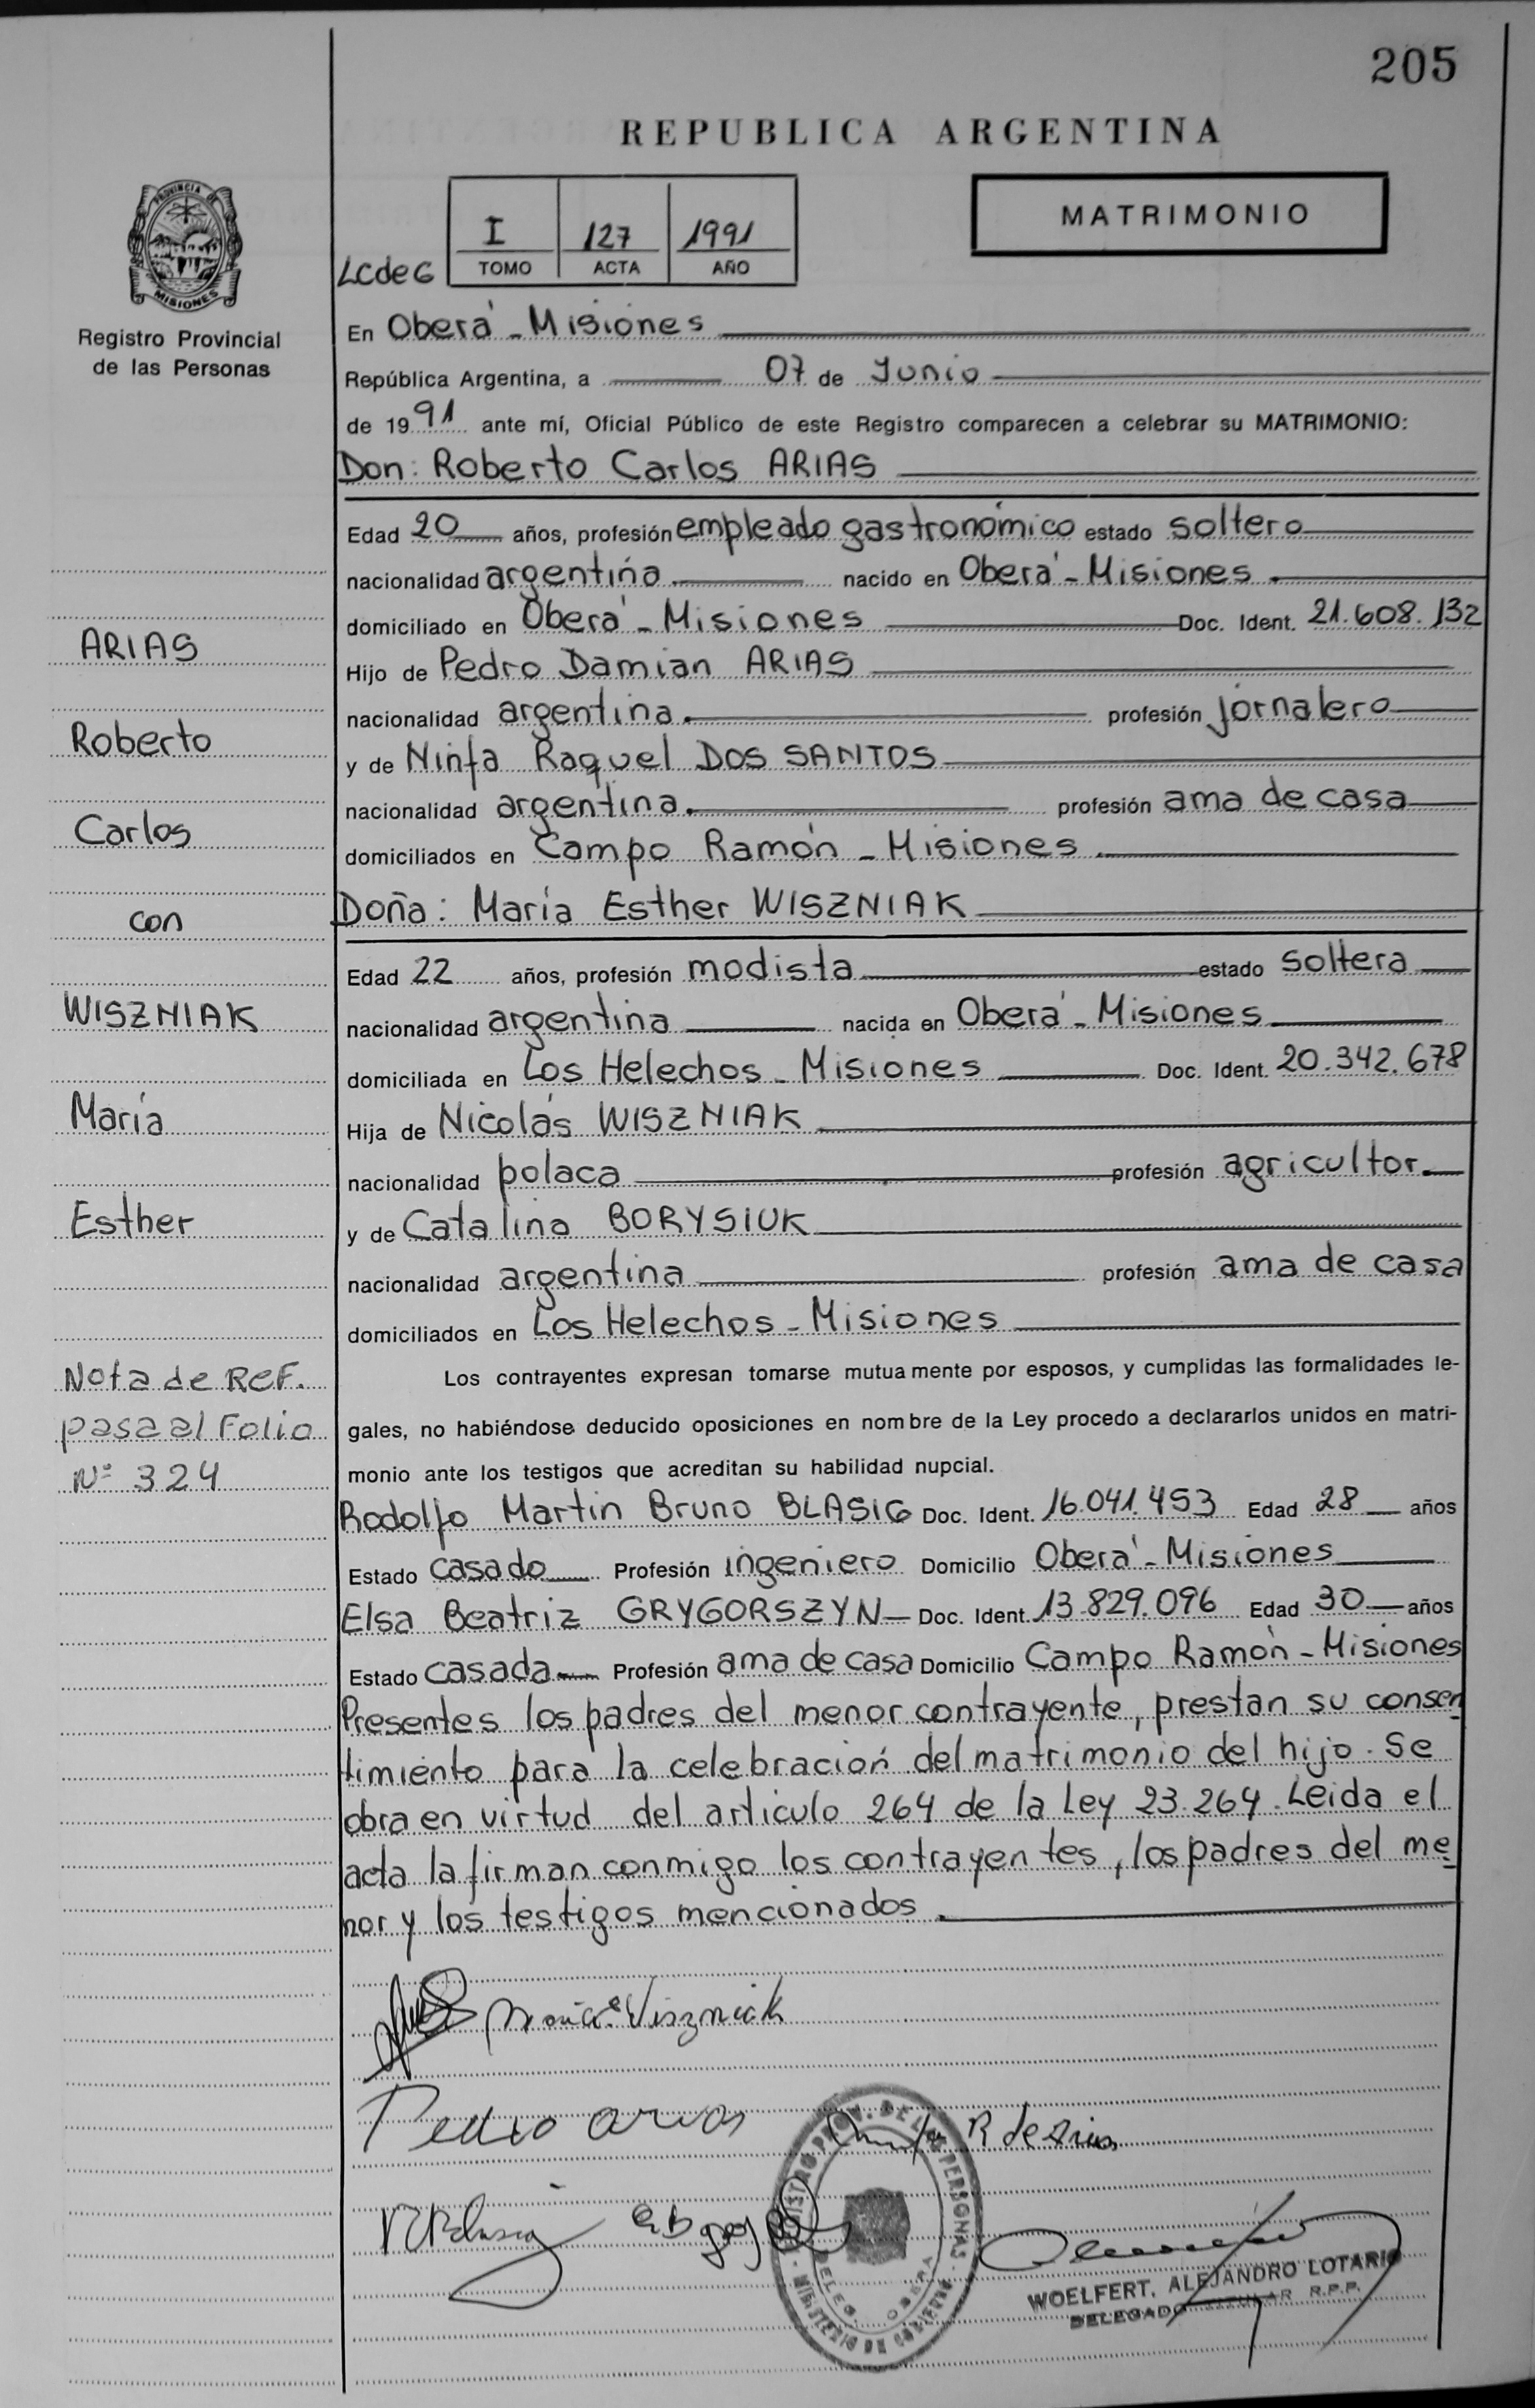 205
REPUBLICA ARGENTINA
PROVINCIA
MISIONES
Registro Provincial
de las Personas
I 127 1991
LCdeG TOMO ACTA AÑO
MATRIMONIO
En Oberá - Misiones
República Argentina, a 07 de Junio
de 1991 ante mí, Oficial Público de este Registro comparecen a celebrar su MATRIMONIO:
Don: Roberto Carlos ARIAS
Edad 20 años, profesión empleado gastronómico estado soltero
nacionalidad argentina nacido en Oberá - Misiones
domiciliado en Oberá - Misiones Doc. Ident. 21.608.132
Hijo de Pedro Damian ARIAS
nacionalidad argentina. profesión jornalero
y de Ninfa Raquel DOS SANTOS
nacionalidad argentina. profesión ama de casa
domiciliados en Campo Ramón - Misiones
Doña: María Esther WISZNIAK
Edad 22 años, profesión modista estado soltera
nacionalidad argentina nacida en Oberá - Misiones
domiciliada en Los Helechos - Misiones Doc. Ident. 20.342.678
Hija de Nicolás WISZNIAK
nacionalidad polaca profesión agricultor.
y de Catalina BORYSIUK
nacionalidad argentina profesión ama de casa
domiciliados en Los Helechos - Misiones
Los contrayentes expresan tomarse mutuamente por esposos, y cumplidas las formalidades le-
gales, no habiéndose deducido oposiciones en nombre de la Ley procedo a declararlos unidos en matri-
monio ante los testigos que acreditan su habilidad nupcial.
Rodolfo Martin Bruno BLASIG Doc. Ident. 16.041.453 Edad 28 años
Estado casado Profesión ingeniero Domicilio Oberá - Misiones
Elsa Beatriz GRYGORSZYN Doc. Ident. 13.829.096 Edad 30 años
Estado casada Profesión ama de casa Domicilio Campo Ramón - Misiones
Presentes los padres del menor contrayente, prestan su consen
timiento para la celebración del matrimonio del hijo. Se
obra en virtud del articulo 264 de la Ley 23.264. Leida el
acta la firman conmigo los contrayentes, los padres del me
nor y los testigos mencionados.
ARIAS
Roberto
Carlos
con
WISZNIAK
María
Esther
Nota de REF.
pasa al Folio
Nº 324
María E Wiszniak
Pedro Arias
R de Arias
REGISTRO PROV. DE LAS PERSONAS
DELEG. OBERA
MINISTERIO DE GOBIERNO
WOELFERT, ALEJANDRO LOTARIO
DELEGADO TITULAR R.P.P.